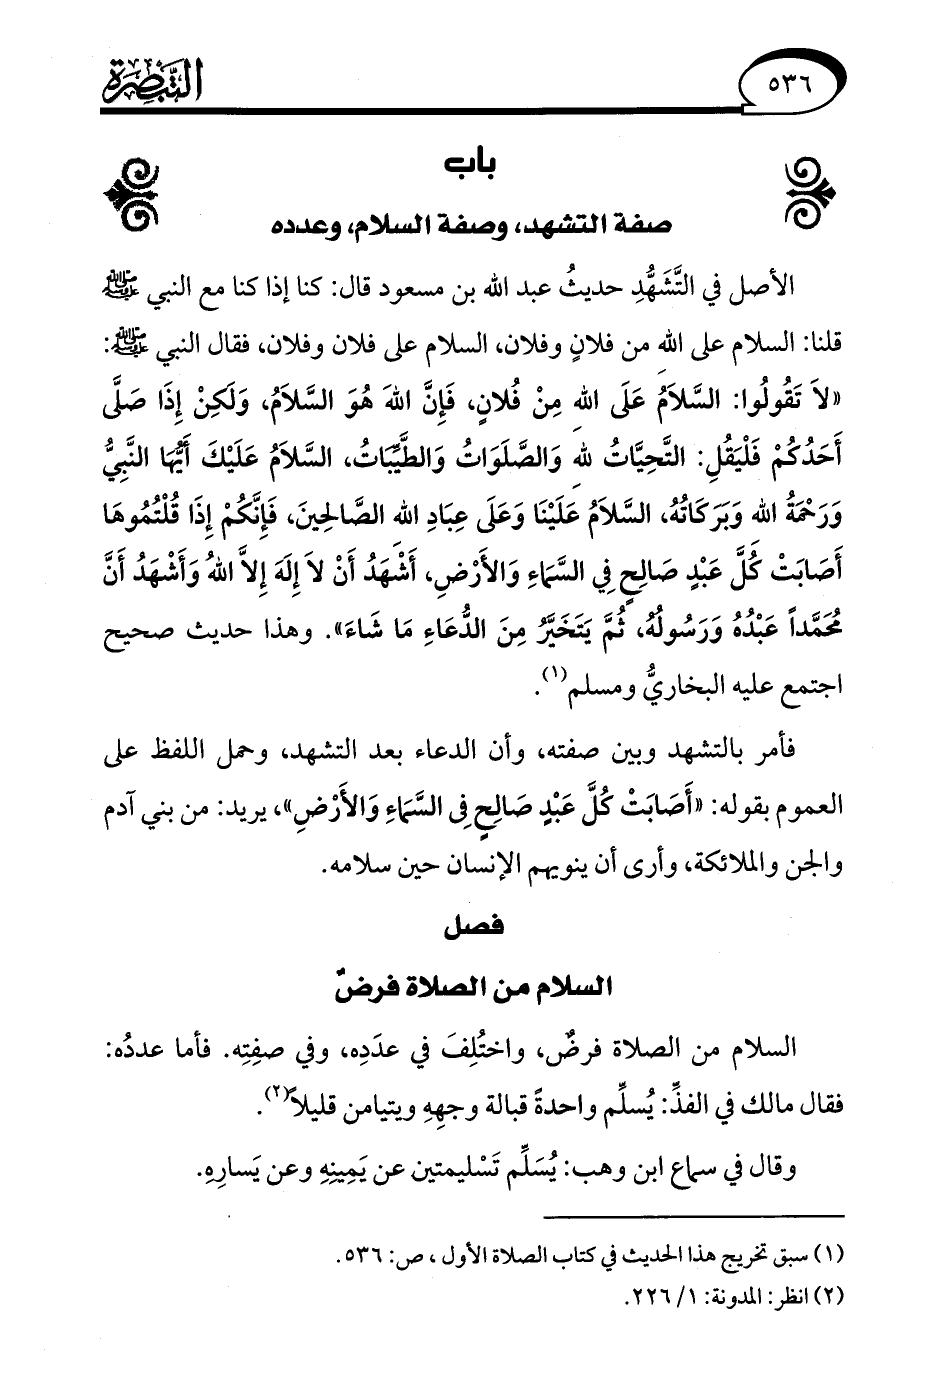 ٥٣٦
التبصرة
باب
صفة التشهد، وصفة السلام، وعدده
الأصل في التَّشَهُّدِ حديثُ عبد الله بن مسعود قال: كنا إذا كنا مع النبي ﷺ
قلنا: السلام على اللهِ من فلانٍ وفلان، السلام على فلان وفلان، فقال النبي ﷺ:
«لاَ تَقُولُوا: السَّلاَمُ عَلَى اللهِ مِنْ فُلانٍ، فَإِنَّ اللهَ هُوَ السَّلاَمُ، وَلَكِنْ إِذَا صَلَّى
أَحَدُكُمْ فَلْيَقُلِ: التَّحِيَّاتُ للهِ وَالصَّلَوَاتُ وَالطَّيِّبَاتُ، السَّلاَمُ عَلَيْكَ أَيُّهَا النَّبِيُّ
وَرَحْمَةُ اللهِ وَبَرَكَاتُهُ، السَّلاَمُ عَلَيْنَا وَعَلَى عِبَادِ اللهِ الصَّالِحِينَ، فَإِنَّكُمْ إِذَا قُلْتُمُوهَا
أَصَابَتْ كُلَّ عَبْدٍ صَالِحٍ فِي السَّمَاءِ وَالأَرْضِ، أَشْهَدُ أَنْ لاَ إِلَهَ إِلاَّ اللهُ وَأَشْهَدُ أَنَّ
مُحَمَّداً عَبْدُهُ وَرَسُولُهُ، ثُمَّ يَتَخَيَّرُ مِنَ الدُّعَاءِ مَا شَاءَ». وهذا حديث صحيح
اجتمع عليه البخاريُّ ومسلم(١).
فأمر بالتشهد وبين صفته، وأن الدعاء بعد التشهد، وحمل اللفظ على
العموم بقوله: «أَصَابَتْ كُلَّ عَبْدٍ صَالِحٍ فِى السَّمَاءِ وَالأَرْضِ»، يريد: من بني آدم
والجن والملائكة، وأرى أن ينويهم الإنسان حين سلامه.
فصل
السلام من الصلاة فرضٌ
السلام من الصلاة فرضٌ، واختُلِفَ في عدَدِه، وفي صفتِه. فأما عددُه:
فقال مالك في الفذِّ: يُسلِّم واحدةً قبالة وجهِهِ ويتيامن قليلاً(٢).
وقال في سماع ابن وهب: يُسَلِّم تَسْليمتين عن يَمِينِهِ وعن يَسارِهِ.
(١) سبق تخريج هذا الحديث في كتاب الصلاة الأول ، ص: ٥٣٦.
(٢) انظر: المدونة: ١/ ٢٢٦.